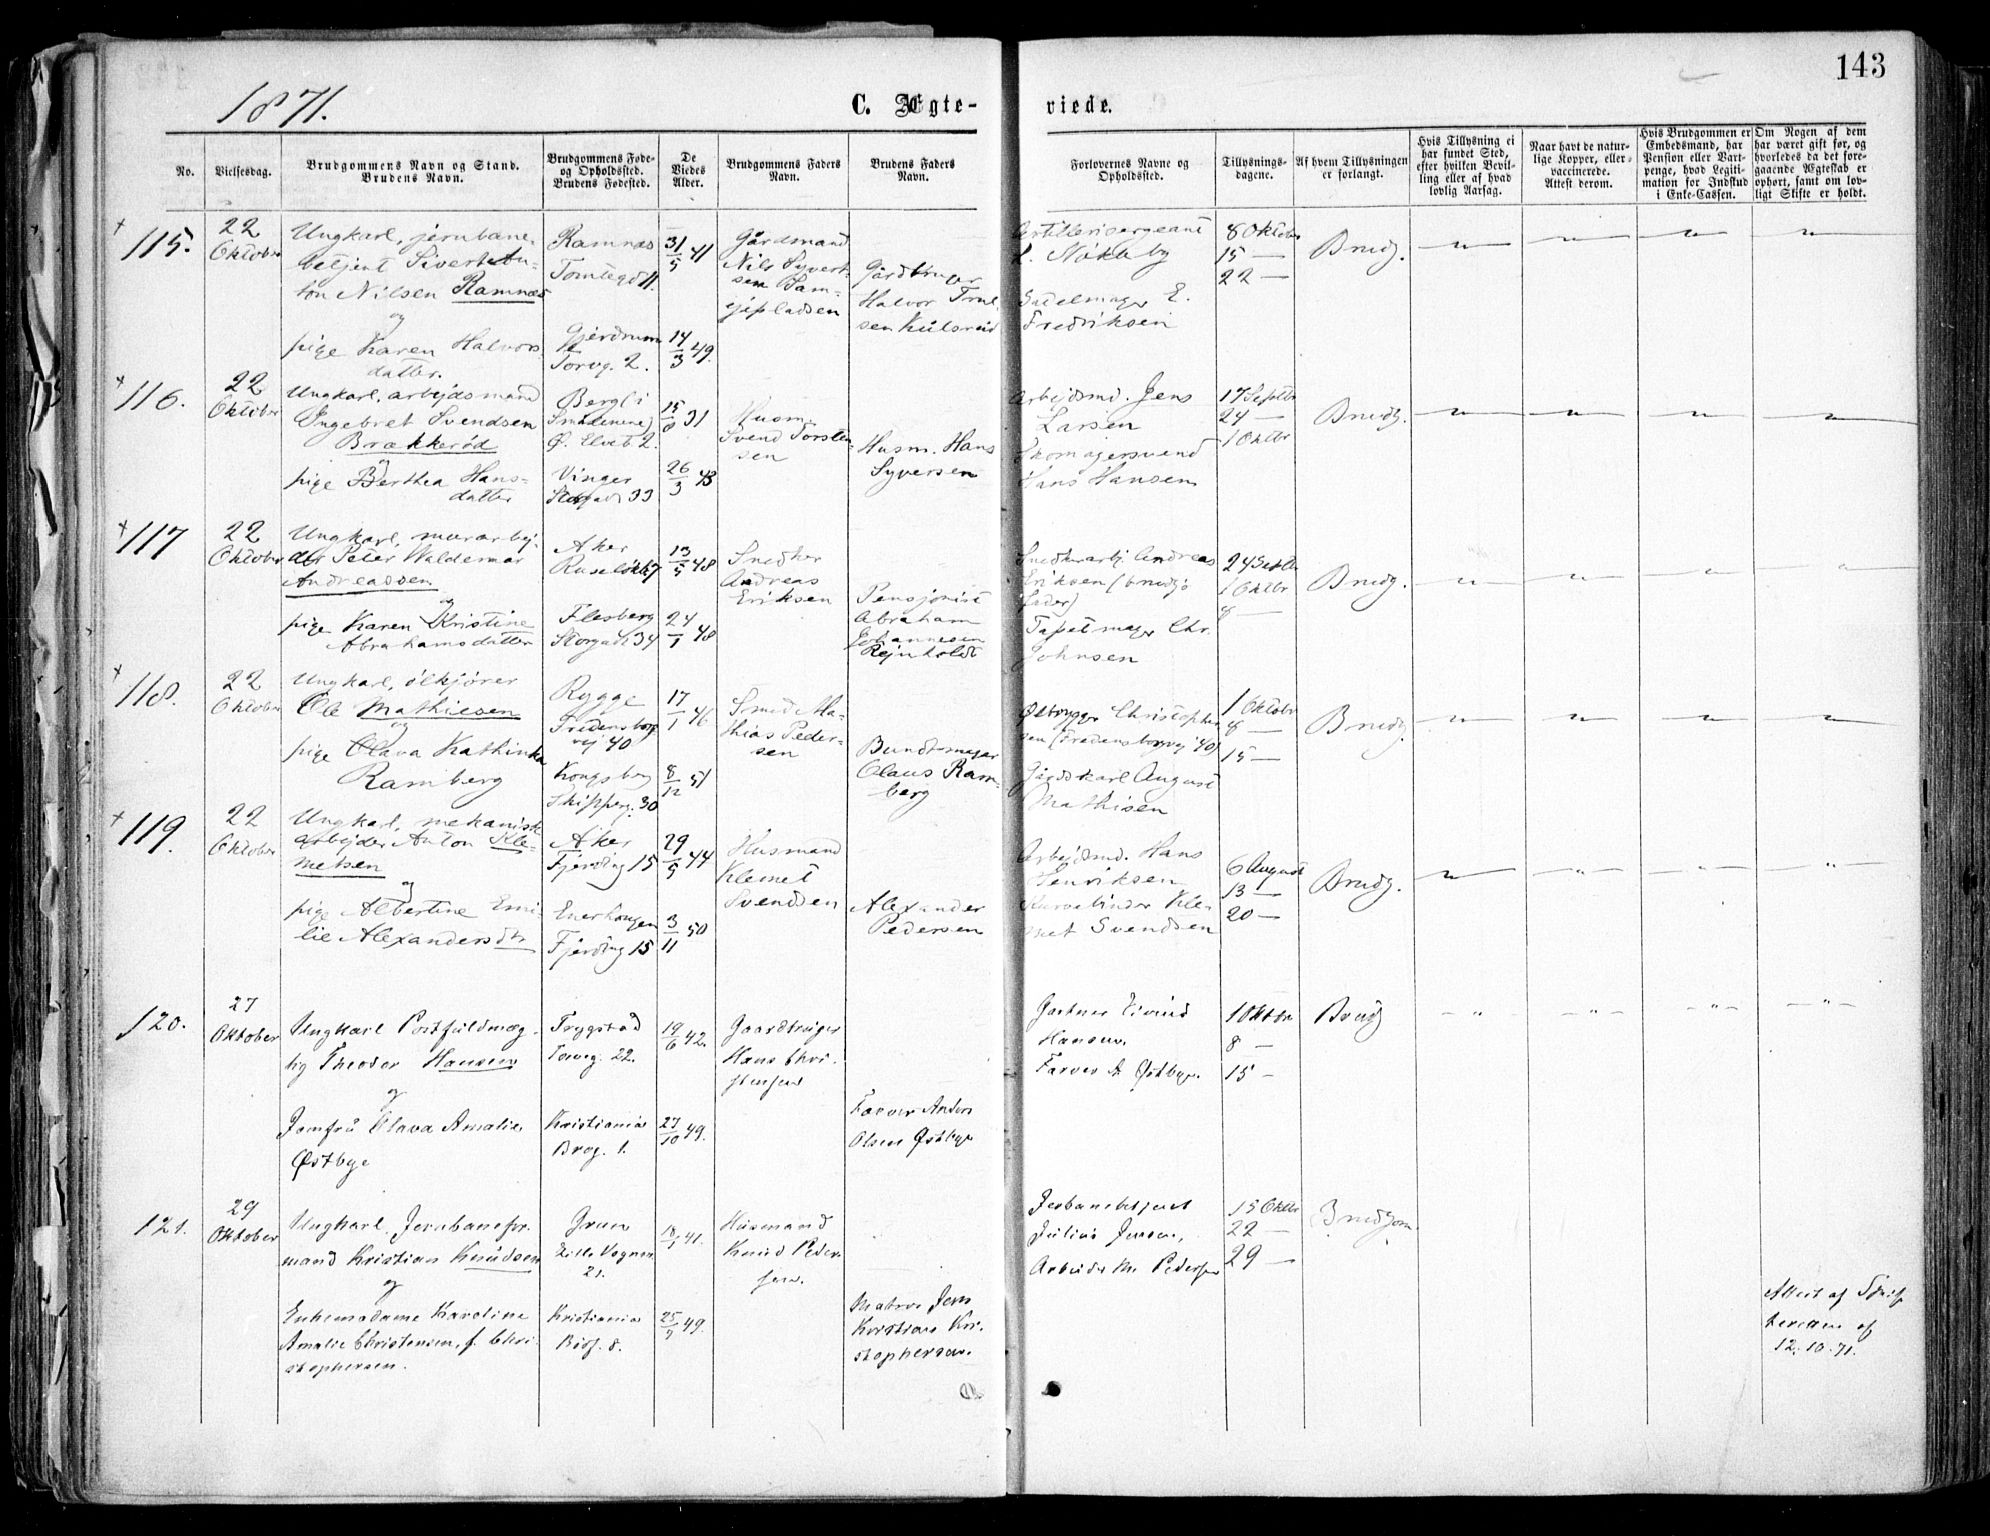 143
1871.
C. Ægte-
viede.
No.
Vielsesdag.
Brudgommens Navn og Stand.
Brudens Navn.
Brudgommens Føde-
og Opholdssted.
Brudens Fødested.
De
Viedes
Alder.
Brudgommens Faders
Navn.
Brudens Faders
Navn.
Forlovernes Navne og
Opholdssted.
Tillysnings-
dagene.
Af hvem Tillysningen
er forlangt.
Hvis Tillysning ei
har fundet Sted,
efter hvilken Bevil-
ling eller af hvad
lovlig Aarsag.
Naar havt de natur-
lige Kopper, eller
vaccinerede.
Attest derom.
Hvis Brudgommen er
Embedsmand, har
Pension eller Vart-
penge, hvad Legiti-
mation for Indskud
i Enke-Cassen.
Om Nogen af dem
har været gift før, og
hvorledes da det fore-
gaaende Ægteskab er
ophørt, samt om lov-
ligt Skifte er holdt.
115.
22
Oktober
Ungkarl, jernbane-
betjent
Nilsen Ramnæs
og
pige Karen Halvors-
datter.
Ramnæs
Tomtegd 11.
Gjerdrum
Torvg. 2.
31/5 41
14/3 49.
Gårdmand
Nils Syvert-
sen
Gårdbruger
Halvor Trul-
sen Kulsrud
Artillerisergeant
L. Nökleby
Sadelmager E.
Fredriksen
8 Oktober
15 —
22 —
Brudg.
116.
22
Oktober
Ungkarl, arbejdsmand
Ingebret Svendsen
Brækkerød
pige Berthea Hans-
datter
Ø. Elveb 2.
Vinger
Storgade 33
15/8 31
26/3 43
Husm.
Svend Torsten-
sen
Husm. Hans
Syversen
Arbejdsmd. Jens
Larsen
Skomagersvend
Hans Hansen
17 Septbr
24 —
1 Oktbr
Brudg.
117
22
Oktober
Ungkarl, murarbej-
der Peter Waldemar
Andreassen
og
pige Karen Kristine
Abrahamsdatter
Aker
Flesberg
Storgade 34
13/5 48
24/1 48
Snedker
Andreas
Eriksen
Pensjonist
Abraham
Johannesen
Rejnholdt
Snedkerarbj. Andreas
Eriksen (brudgs
fader)
Tapetmager Chr.
Johnsen
24 Septbr
1 Oktbr
8 —
Brudg.
118.
22
Oktober
Ungkarl, ølkjører
Ole Mathiesen
og
pige Olava Kathinka
Ramberg
Rygge
Fredensborg
vej 40
Kongsberg
Skipperg. 30
17/1 46
8/12 51
Smed Ma-
thias Peder-
sen
Bundtmager
Claus Ram-
berg
Ølbrygger Christopher-
sen (Fredensborgvej 40)
Gårdskarl August
Mathisen
1 Oktober
8 —
15 —
Brudg.
119.
22
Oktober
Ungkarl, mekanisk
arbejder Anton Kle-
metsen
og
pige Albertine Emi-
lie Alexandersdtr
Aker
Fjerding 15
Enerhougen
Fjerding 15
29/5 44
3/11 50
Husmand
Klemet
Svendsen
Alexander
Pedersen
Arbejdsmd. Hans
Henriksen
Kurvebinder Kle-
met Svendsen
6 August
13 —
20 —
Brudg.
120.
27
Oktober
Ungkarl Postfuldmæg-
tig Theodor Hansen
og
Jomfru Olava Amalie
Østbye
Trygstad
Torvg. 22.
Kristiania
Brog. 1.
19/6 42.
27/10 49.
Gaardbruger
Hans Chri-
stensen
Farver Anders
Olsen Østbye
Gartner Eivind
Hansen.
Farver A Østbye.
1 Oktbr
8 —
15 —
Brudg
121.
29
Oktober
Ungkarl, Jernbanefor-
mand Kristian Knudsen
og
Enkemadame Karoline
Amalie Christensen, f. Chri-
stophersen.
Grue
Lille Vognm.
21.
Kristiania
41.
25/9 49.
Husmand
Knud Peder-
sen.
Matros Jens
Kristian Kri-
stophersen.
Jerbanebetjent
Julius Jensen,
Arbeider M. Pedersen
15 Oktbr
22 —
29 —
Brudgom.
Attest af Skif-
teretten af
12-10-71.